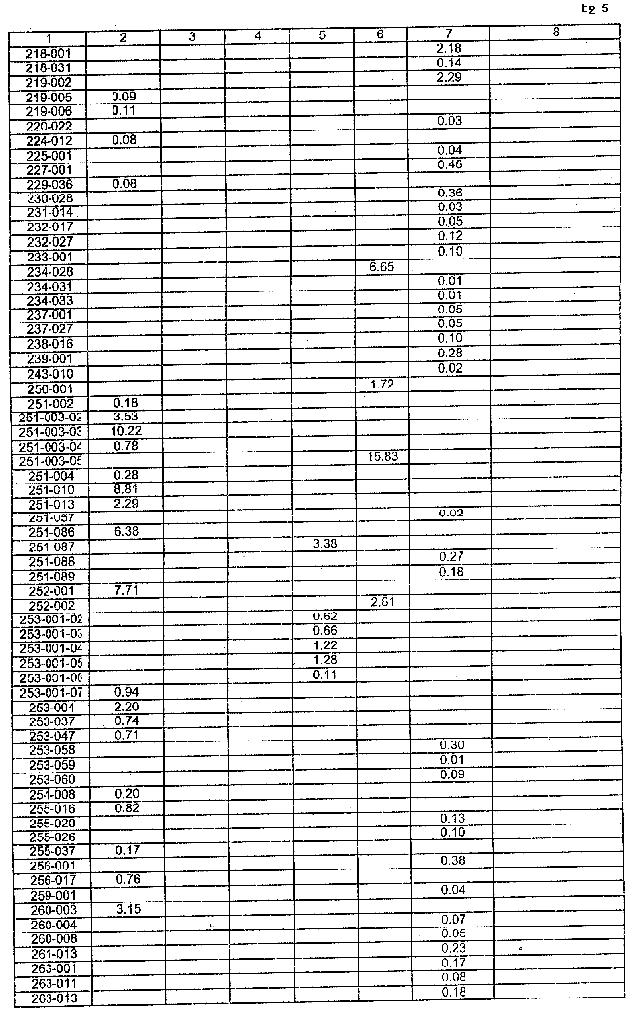 5
1 2 3 4 5 6 7 8
218-001 2.18
218-031 0.14
219-002 2.29
219-005 0.09
219-006 0.11
220-022 0.03
224-012 0.08
225-001 0.04
227-001 0.46
229-036 0.08
230-028 0.36
231-014 0.03
232-017 0.05
232-027 0.12
233-001 0.10
234-028 6.65
234-031 0.01
234-033 0.01
237-001 0.05
237-027 0.05
238-016 0.10
239-001 0.28
243-010 0.02
250-001 1.72
251-002 0.18
251-003-02 3.53
251-003-03 10.22
251-003-04 0.78
251-003-05 15.83
251-004 0.28
251-010 8.81
251-013 2.29
251-057 0.02
251-086 6.38
251-087 3.38
251-088 0.27
251-089 0.18
252-001 7.71
252-002 2.61
253-001-02 0.62
253-001-03 0.66
253-001-04 1.22
253-001-05 1.28
253-001-06 0.11
253-001-07 0.94
253-004 2.20
253-037 0.74
253-047 0.71
253-058 0.30
253-059 0.01
253-060 0.09
254-008 0.20
255-016 0.82
255-020 0.13
255-026 0.10
255-037 0.17
256-001 0.38
256-017 0.76
259-001 0.04
260-003 3.15
260-004 0.07
260-008 0.05
261-013 0.23
263-001 0.17
263-011 0.08
263-013 0.18